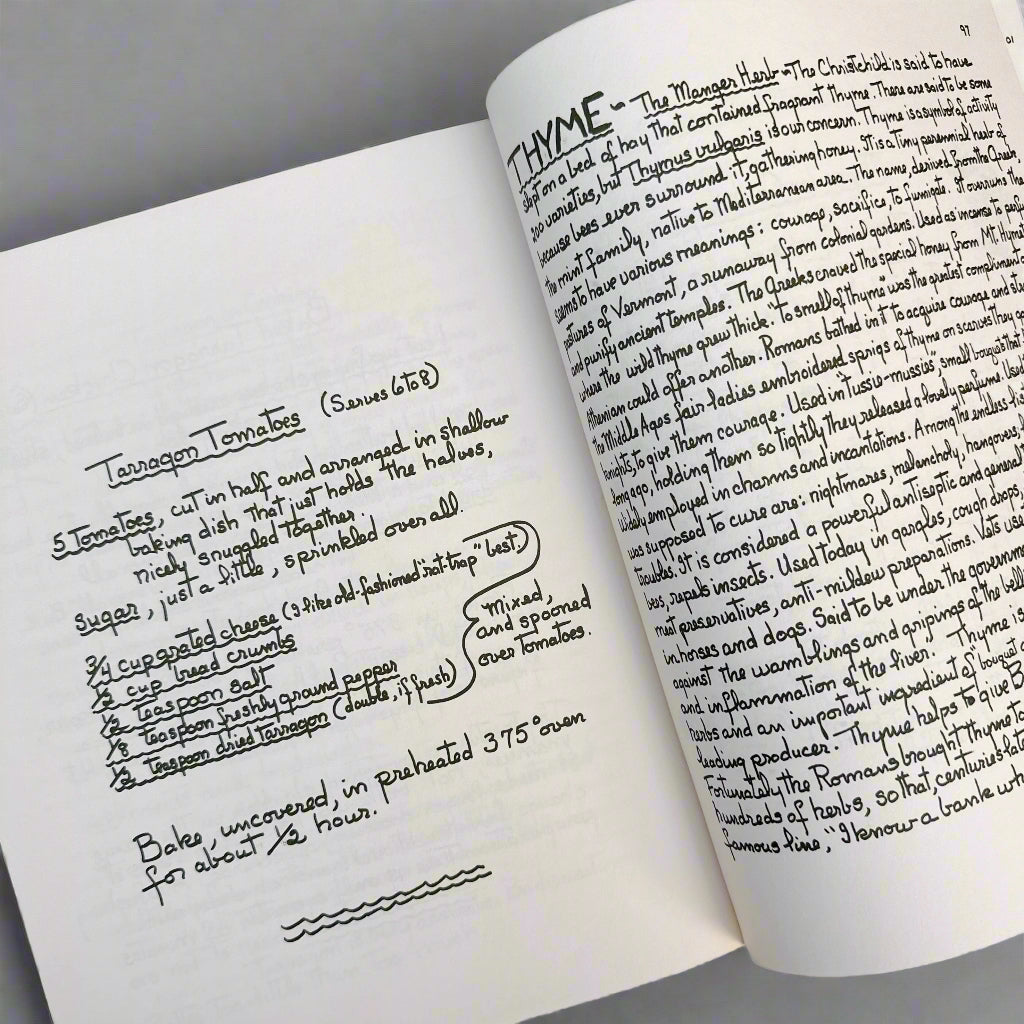 Tarragon Tomatoes (Serves 6 to 8)
5 Tomatoes, cut in half and arranged in shallow
baking dish that just holds the halves,
nicely snuggled together.
sugar, just a little, sprinkled over all.
3/4 cup grated cheese (I like old-fashioned "rat-trap" best.)
1/2 cup bread crumbs
1/2 teaspoon salt
1/8 teaspoon freshly ground pepper
1/2 teaspoon dried tarragon (double, if fresh)
Mixed,
and spooned
over tomatoes.
Bake, uncovered, in preheated 375° oven
for about 1/2 hour.
97
THYME - The Manger Herb - The Christchild is said to have
slept on a bed of hay that contained fragrant thyme. There are said to be some
200 varieties, but Thymus vulgaris is our concern. Thyme is a symbol of activity
because bees ever surround it, gathering honey. It is a tiny perennial herb of
the mint family, native to Mediterranean area. The name, derived from the Greek,
seems to have various meanings: courage, sacrifice, to fumigate. It overruns the
pastures of Vermont, a runaway from colonial gardens. Used as incense to
and purify ancient temples. The Greeks craved the special honey from Mt.
where the wild thyme grew thick. "To smell of thyme" was the greatest compliment
Athenian could offer another. Romans bathed in it to acquire courage and
the Middle Ages fair ladies embroidered sprigs of thyme on scarves they
knights, to give them courage. Used in "tussie-mussies", small bouquets that
long ago, holding them so tightly they released a lovely perfume. Used
widely employed in charms and incantations. Among the endless
was supposed to cure are: nightmares, melancholy, hangovers,
troubles. It is considered a powerful antiseptic and general
repels insects. Used today in gargles, cough drops,
meat preservatives, anti-mildew preparations. Vets use
in horses and dogs. Said to be under the
against the wamblings and gripings of the
and inflammation of the liver." Thyme is
herbs and an important ingredient of "bouquet
leading producer. Thyme helps to give
Fortunately the Romans brought thyme to
hundreds of herbs, so that, centuries
famous line, "I know a bank